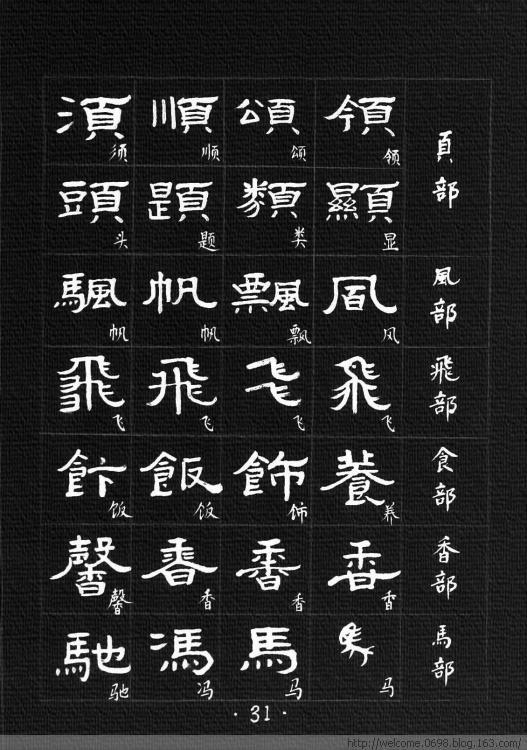 頁部
領 頌 順 須
领 颂 顺 须
顯 類 題 頭
显 类 题 头
風部
風 飄 帆 颿
风 飘 帆 帆
飛部
飛 飛 飛 飛
飞 飞 飞 飞
食部
養 飾 飯 飰
养 饰 饭 饭
香部
香 香 香 馨
香 香 香 馨
馬部
馬 馬 馮 馳
马 马 冯 驰
· 31 ·
http://welcome.0698.blog.163.com/